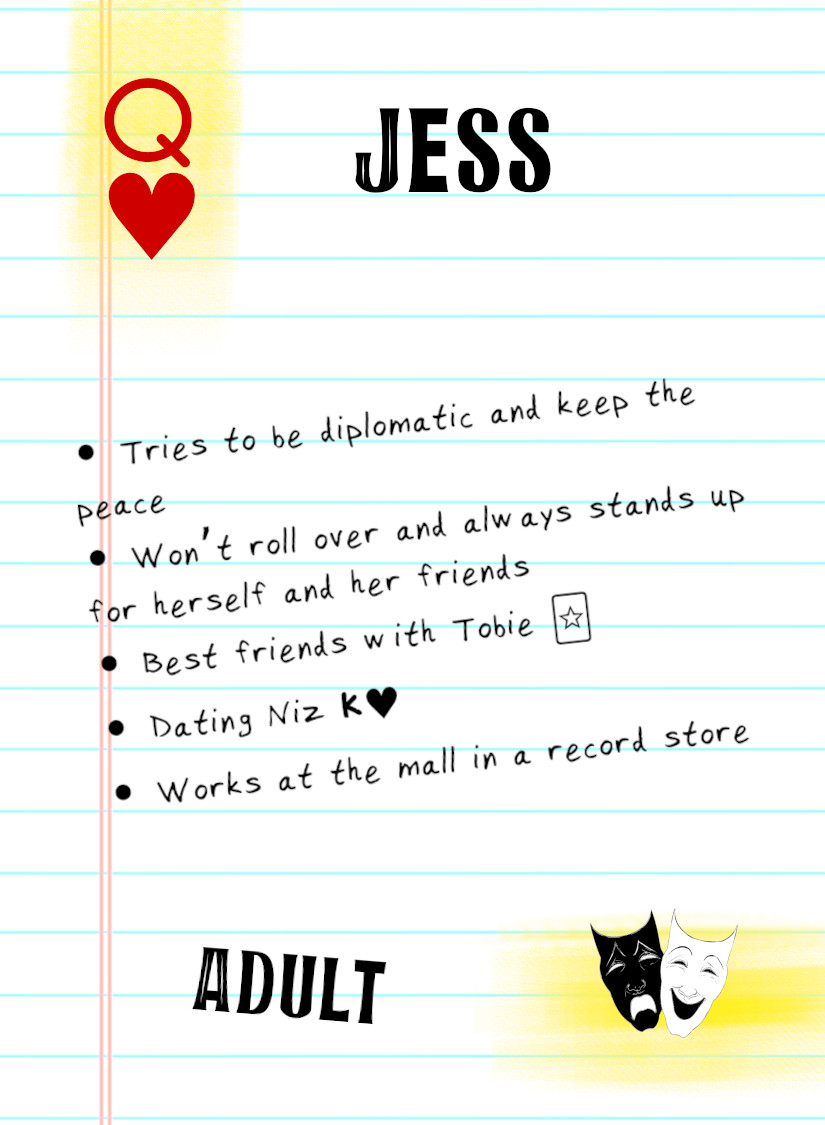 Q
♥
JESS
• Tries to be diplomatic and keep the
peace
• Won't roll over and always stands up
for herself and her friends
• Best friends with Tobie
• Dating Niz K♥
• Works at the mall in a record store
ADULT